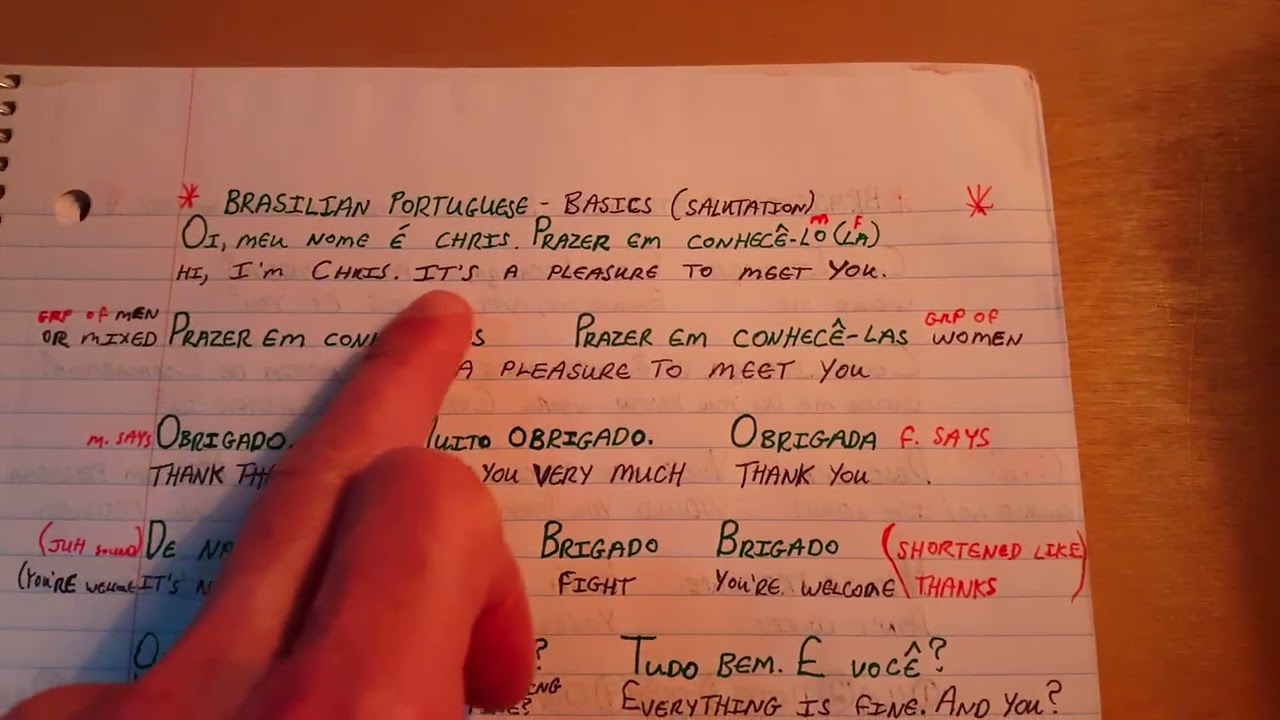 * BRASILIAN PORTUGUESE - BASICS (SALUTATION) *
m f
OI, MEU NOME É CHRIS. PRAZER EM CONHECÊ-LO (LA)
HI, I'M CHRIS. IT'S A PLEASURE TO MEET YOU.
GRP OF MEN GRP OF
OR MIXED PRAZER EM CON S PRAZER EM CONHECÊ-LAS WOMEN
A PLEASURE TO MEET YOU
M. SAYS OBRIGADO. UITO OBRIGADO. OBRIGADA F. SAYS
THANK YOU VERY MUCH THANK YOU .
(JUH sound) DE NA BRIGADO BRIGADO (SHORTENED LIKE
(YOU'RE WELCOME IT'S N FIGHT YOU'RE WELCOME THANKS)
O ? TUDO BEM. E VOCÊ?
ING EVERYTHING IS FINE. AND YOU?